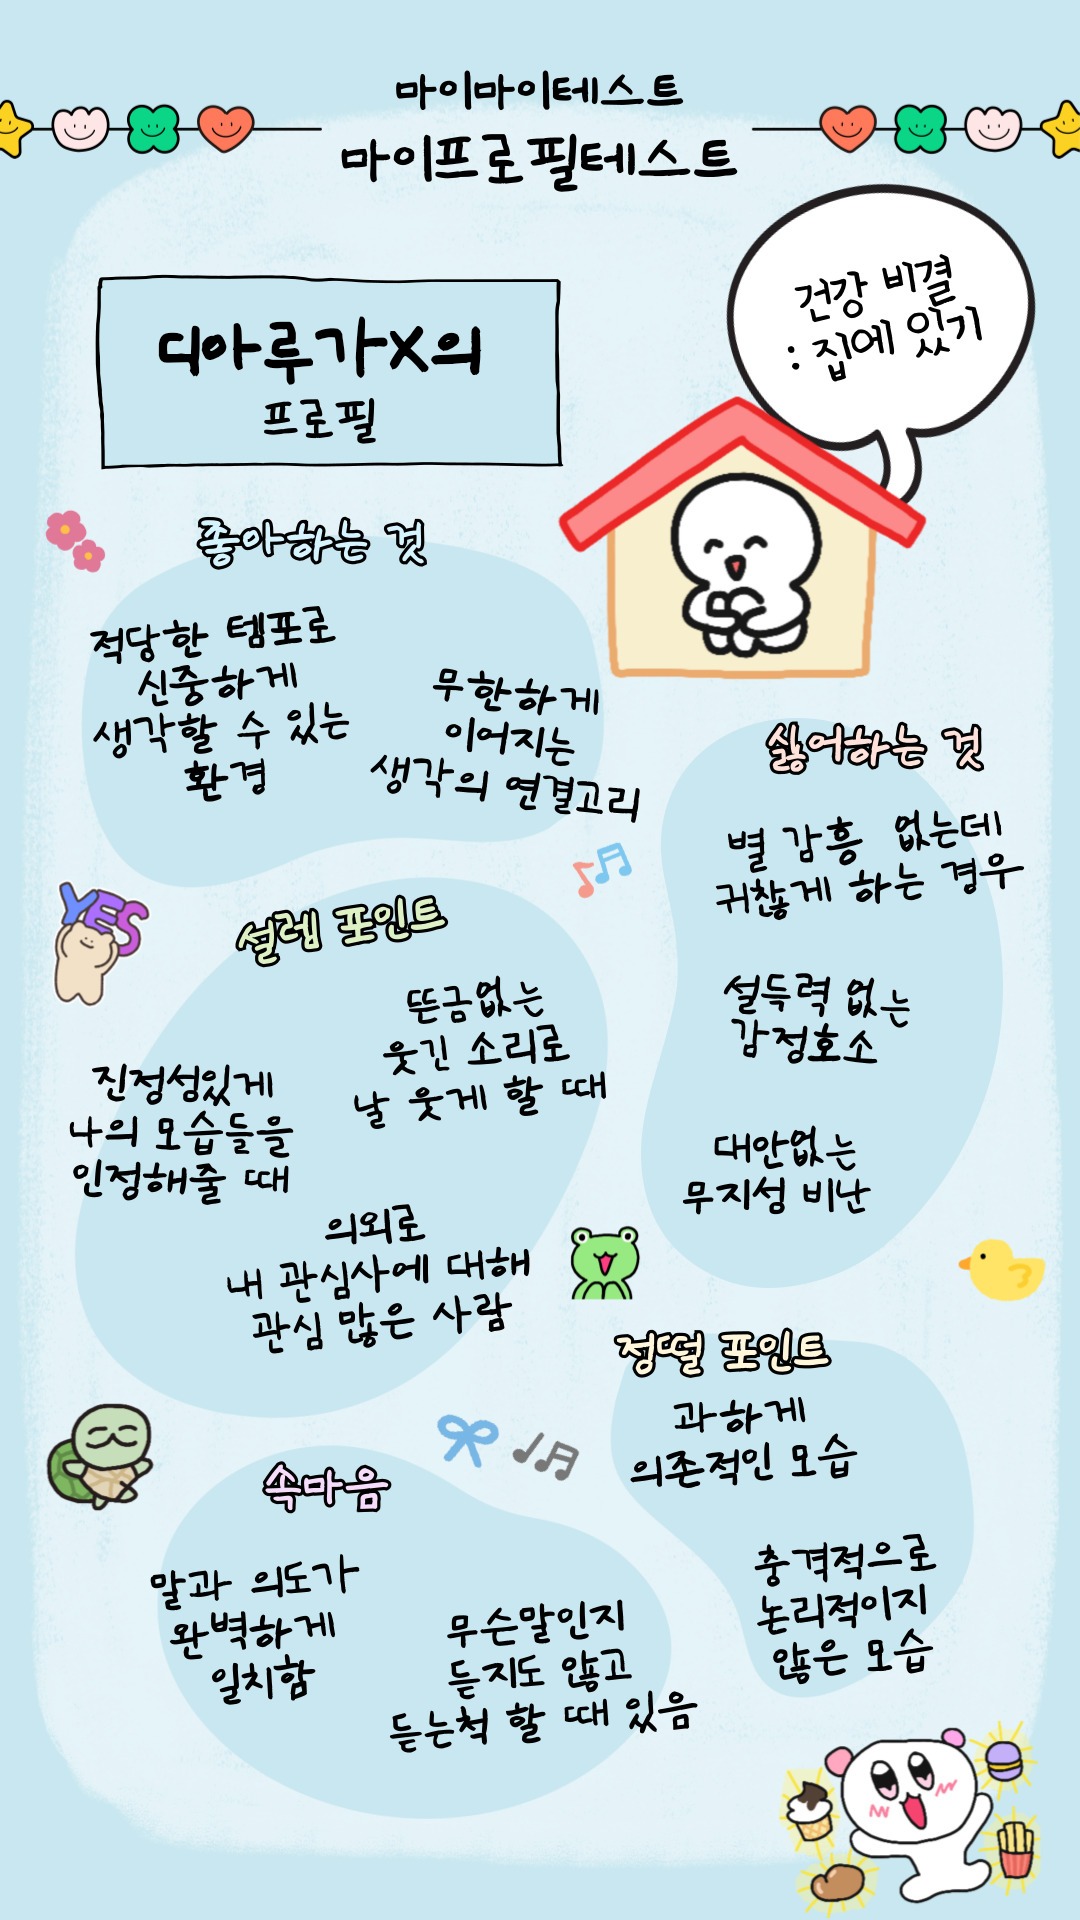 마이마이테스트
마이프로필테스트
건강 비결
: 집에 있기
디아루가X의
프로필
좋아하는 것
적당한 템포로
신중하게
생각할 수 있는
환경
무한하게
이어지는
생각의 연결고리
싫어하는 것
별 감흥 없는데
귀찮게 하는 경우
설득력 없는
감정호소
대안없는
무지성 비난
설렘 포인트
뜬금없는
웃긴 소리로
날 웃게 할 때
진정성있게
나의 모습들을
인정해줄 때
의외로
내 관심사에 대해
관심 많은 사람
YES
정떨 포인트
과하게
의존적인 모습
충격적으로
논리적이지
않은 모습
속마음
말과 의도가
완벽하게
일치함
무슨말인지
듣지도 않고
듣는척 할 때 있음